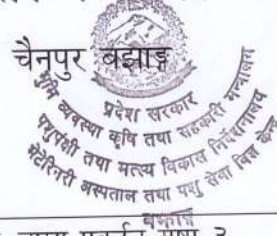 चैनपुर बझाङ्ग
प्रदेश सरकार
भूमि व्यवस्था कृषि तथा सहकारी मन्त्रालय
पशुपंक्षी तथा मत्स्य विकास निर्देशनालय
भेटेरिनरी अस्पताल तथा पशु सेवा विज्ञ केन्द्र
बझाङ्ग